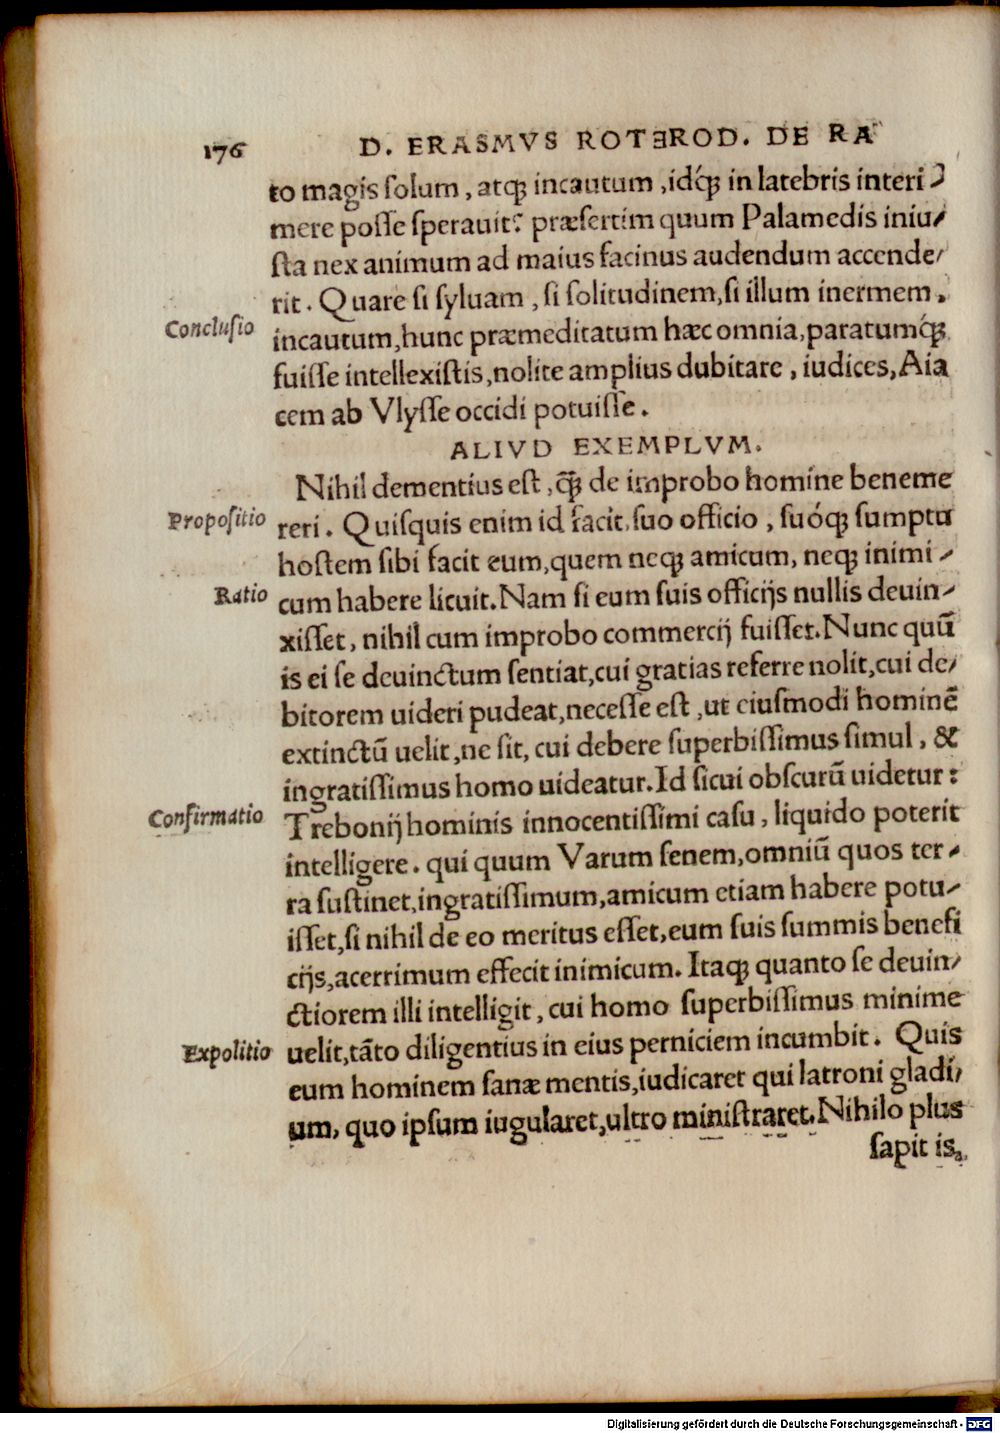 176 D. ERASMVS ROTEROD. DE RA
to magis ſolum, atq; incautum, idq́; in latebris interi-
mere poſſe ſperauit? præſertim quum Palamedis iniu-
ſta nex animum ad maius facinus audendum accende-
rit. Quare ſi ſyluam, ſi ſolitudinem, ſi illum inermem,
Concluſio
incautum, hunc præmeditatum hæc omnia, paratumq́;
fuiſſe intellexiſtis, nolite amplius dubitare, iudices, Aia
cem ab Vlyſſe occidi potuiſſe.
ALIVD EXEMPLVM.
Nihil dementius eſt, q̃; de improbo homine beneme
Propoſitio
reri. Quiſquis enim id facit, ſuo officio, ſuóq; ſumptu
hoſtem ſibi facit eum, quem neq; amicum, neq; inimi-
Ratio
cum habere licuit. Nam ſi eum ſuis officijs nullis deuin-
xiſſet, nihil cum improbo commercij fuiſſet. Nunc quũ
is ei ſe deuinctum ſentiat, cui gratias referre nolit, cui de-
bitorem uideri pudeat, neceſſe eſt, ut eiuſmodi hominẽ
extinctũ uelit, ne ſit, cui debere ſuperbiſſimus ſimul, &
ingratiſſimus homo uideatur. Id ſicui obſcurũ uidetur:
Confirmatio
Trebonij hominis innocentiſſimi caſu, liquido poterit
intelligere. qui quum Varum ſenem, omniũ quos ter-
ra ſuſtinet, ingratiſſimum, amicum etiam habere potu-
iſſet, ſi nihil de eo meritus eſſet, eum ſuis ſummis benefi
cijs, acerrimum effecit inimicum. Itaq; quanto ſe deuin-
ctiorem illi intelligit, cui homo ſuperbiſſimus minime
Expolitio
uelit, tãto diligentius in eius perniciem incumbit. Quis
eum hominem ſanæ mentis, iudicaret qui latroni gladi-
um, quo ipſum iugularet, ultro miniſtraret. Nihilo plus
ſapit is,
Digitalisierung gefördert durch die Deutsche Forschungsgemeinschaft - DFG